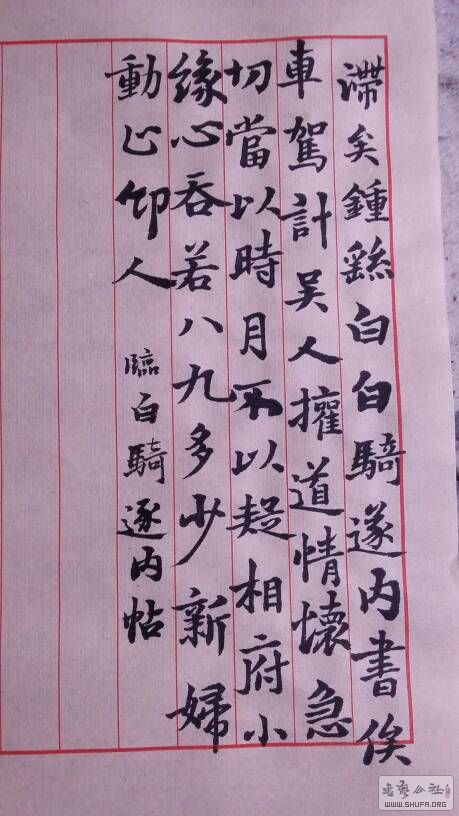 滞矣鍾繇白白騎遂内書俟
車駕計吴人權道情懷急
切當以時月不以疑相府小
緣心吞若八九多少新婦
動止仰人
臨白騎逐内帖
WWW.SHUFA.ORG